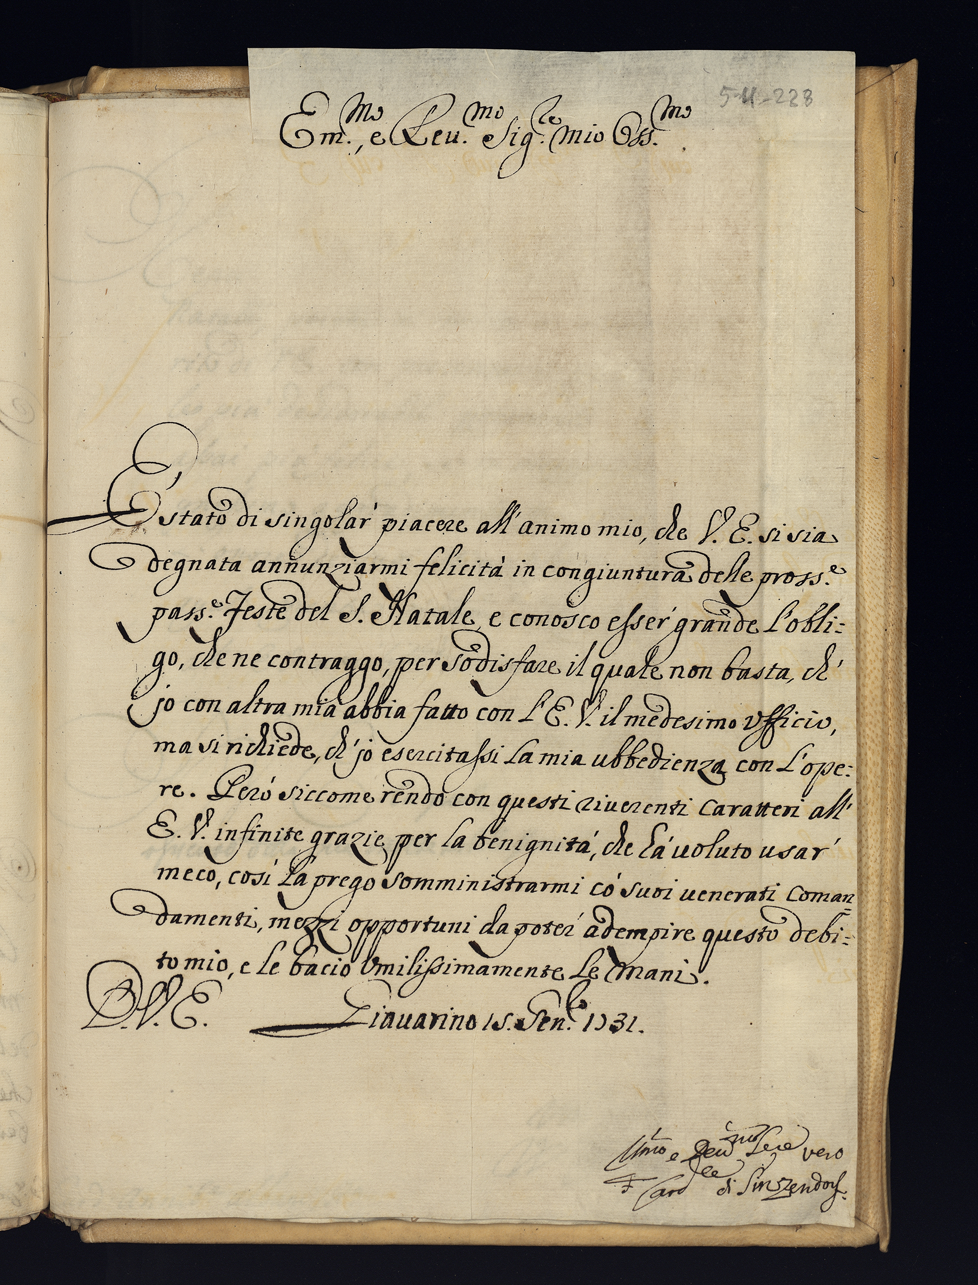 5-11-228
Em.mo, e Reu.mo Sig.re mio Oss.mo
É stato di singolar' piacere all'animo mio, che V. E. si sia
degnata annunziarmi felicità in congiuntura delle pross.e
pass.e Feste del S. Natale, e conosco esser' grande l'obli=
go, che ne contraggo, per sodisfare il quale non basta, ch'
jo con altra mia abbia fatto con l'E. V. il medesimo vfficio,
ma si richiede, ch'jo esercitassi la mia ubbedienza con l'ope=
re. Peró siccome rendo con questi riuerenti caratteri all'
E. V. infinite grazie per la benignitá, che há voluto usar'
meco, cosí la prego somministrarmi có suoi uenerati coman=
damenti, mezzi opportuni da poter' adempire questo debi=
to mio, e le bacio Vmilissimamente le mani.
D. V. E. Giauarino 15. Gen.o 1731.
Umo e Deu.mo Sere vero
Card.le di Sinzendorf.